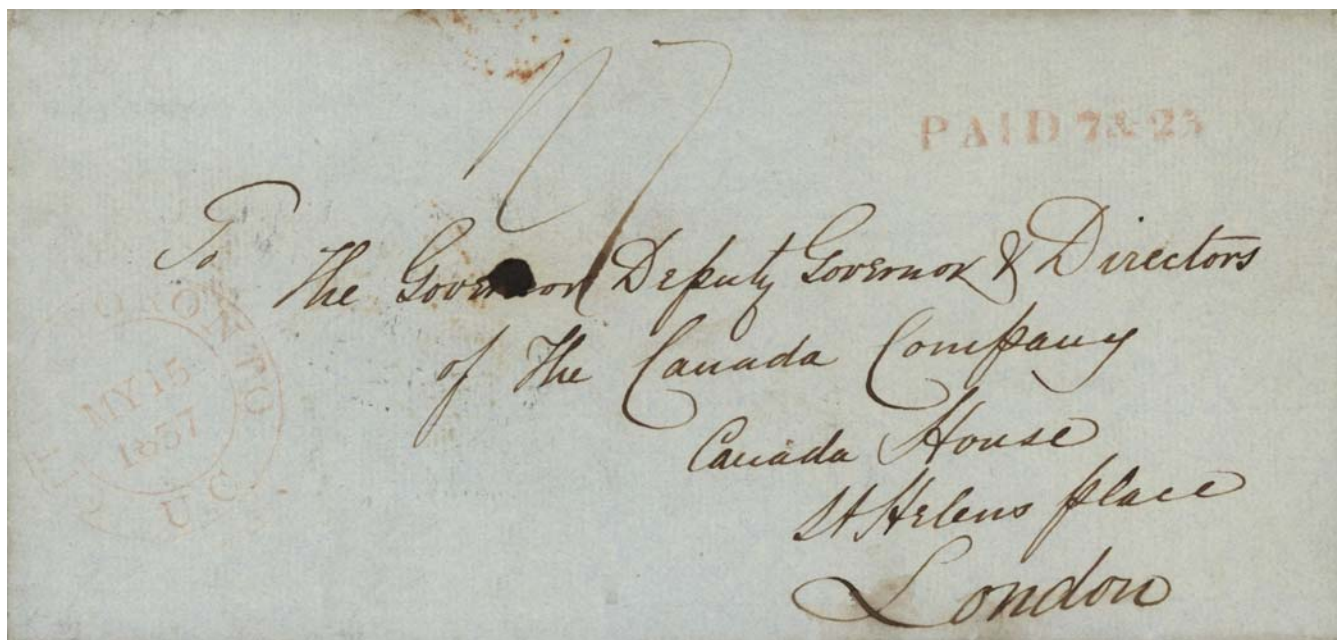 PAID 7&25
To
The Governor Deputy Governor & Directors
of The Canada Company
Canada House
St Helens place
London
TORONTO
MY 15
1837
U.C.